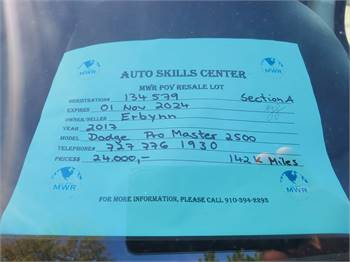 AUTO SKILLS CENTER
MWR POV RESALE LOT
MWR
MWR
REGISTRATION# 134579 Section A
EXPIRES 01 Nov 2024
OWNER/SELLER Erbynn
YEAR 2017
MODEL Dodge Pro Master 2500
TELEPHONE# 727 776 1930
PRICE$$ 24.000,- 142 K Miles
MWR
MWR
FOR MORE INFORMATION, PLEASE CALL 910-394-2293